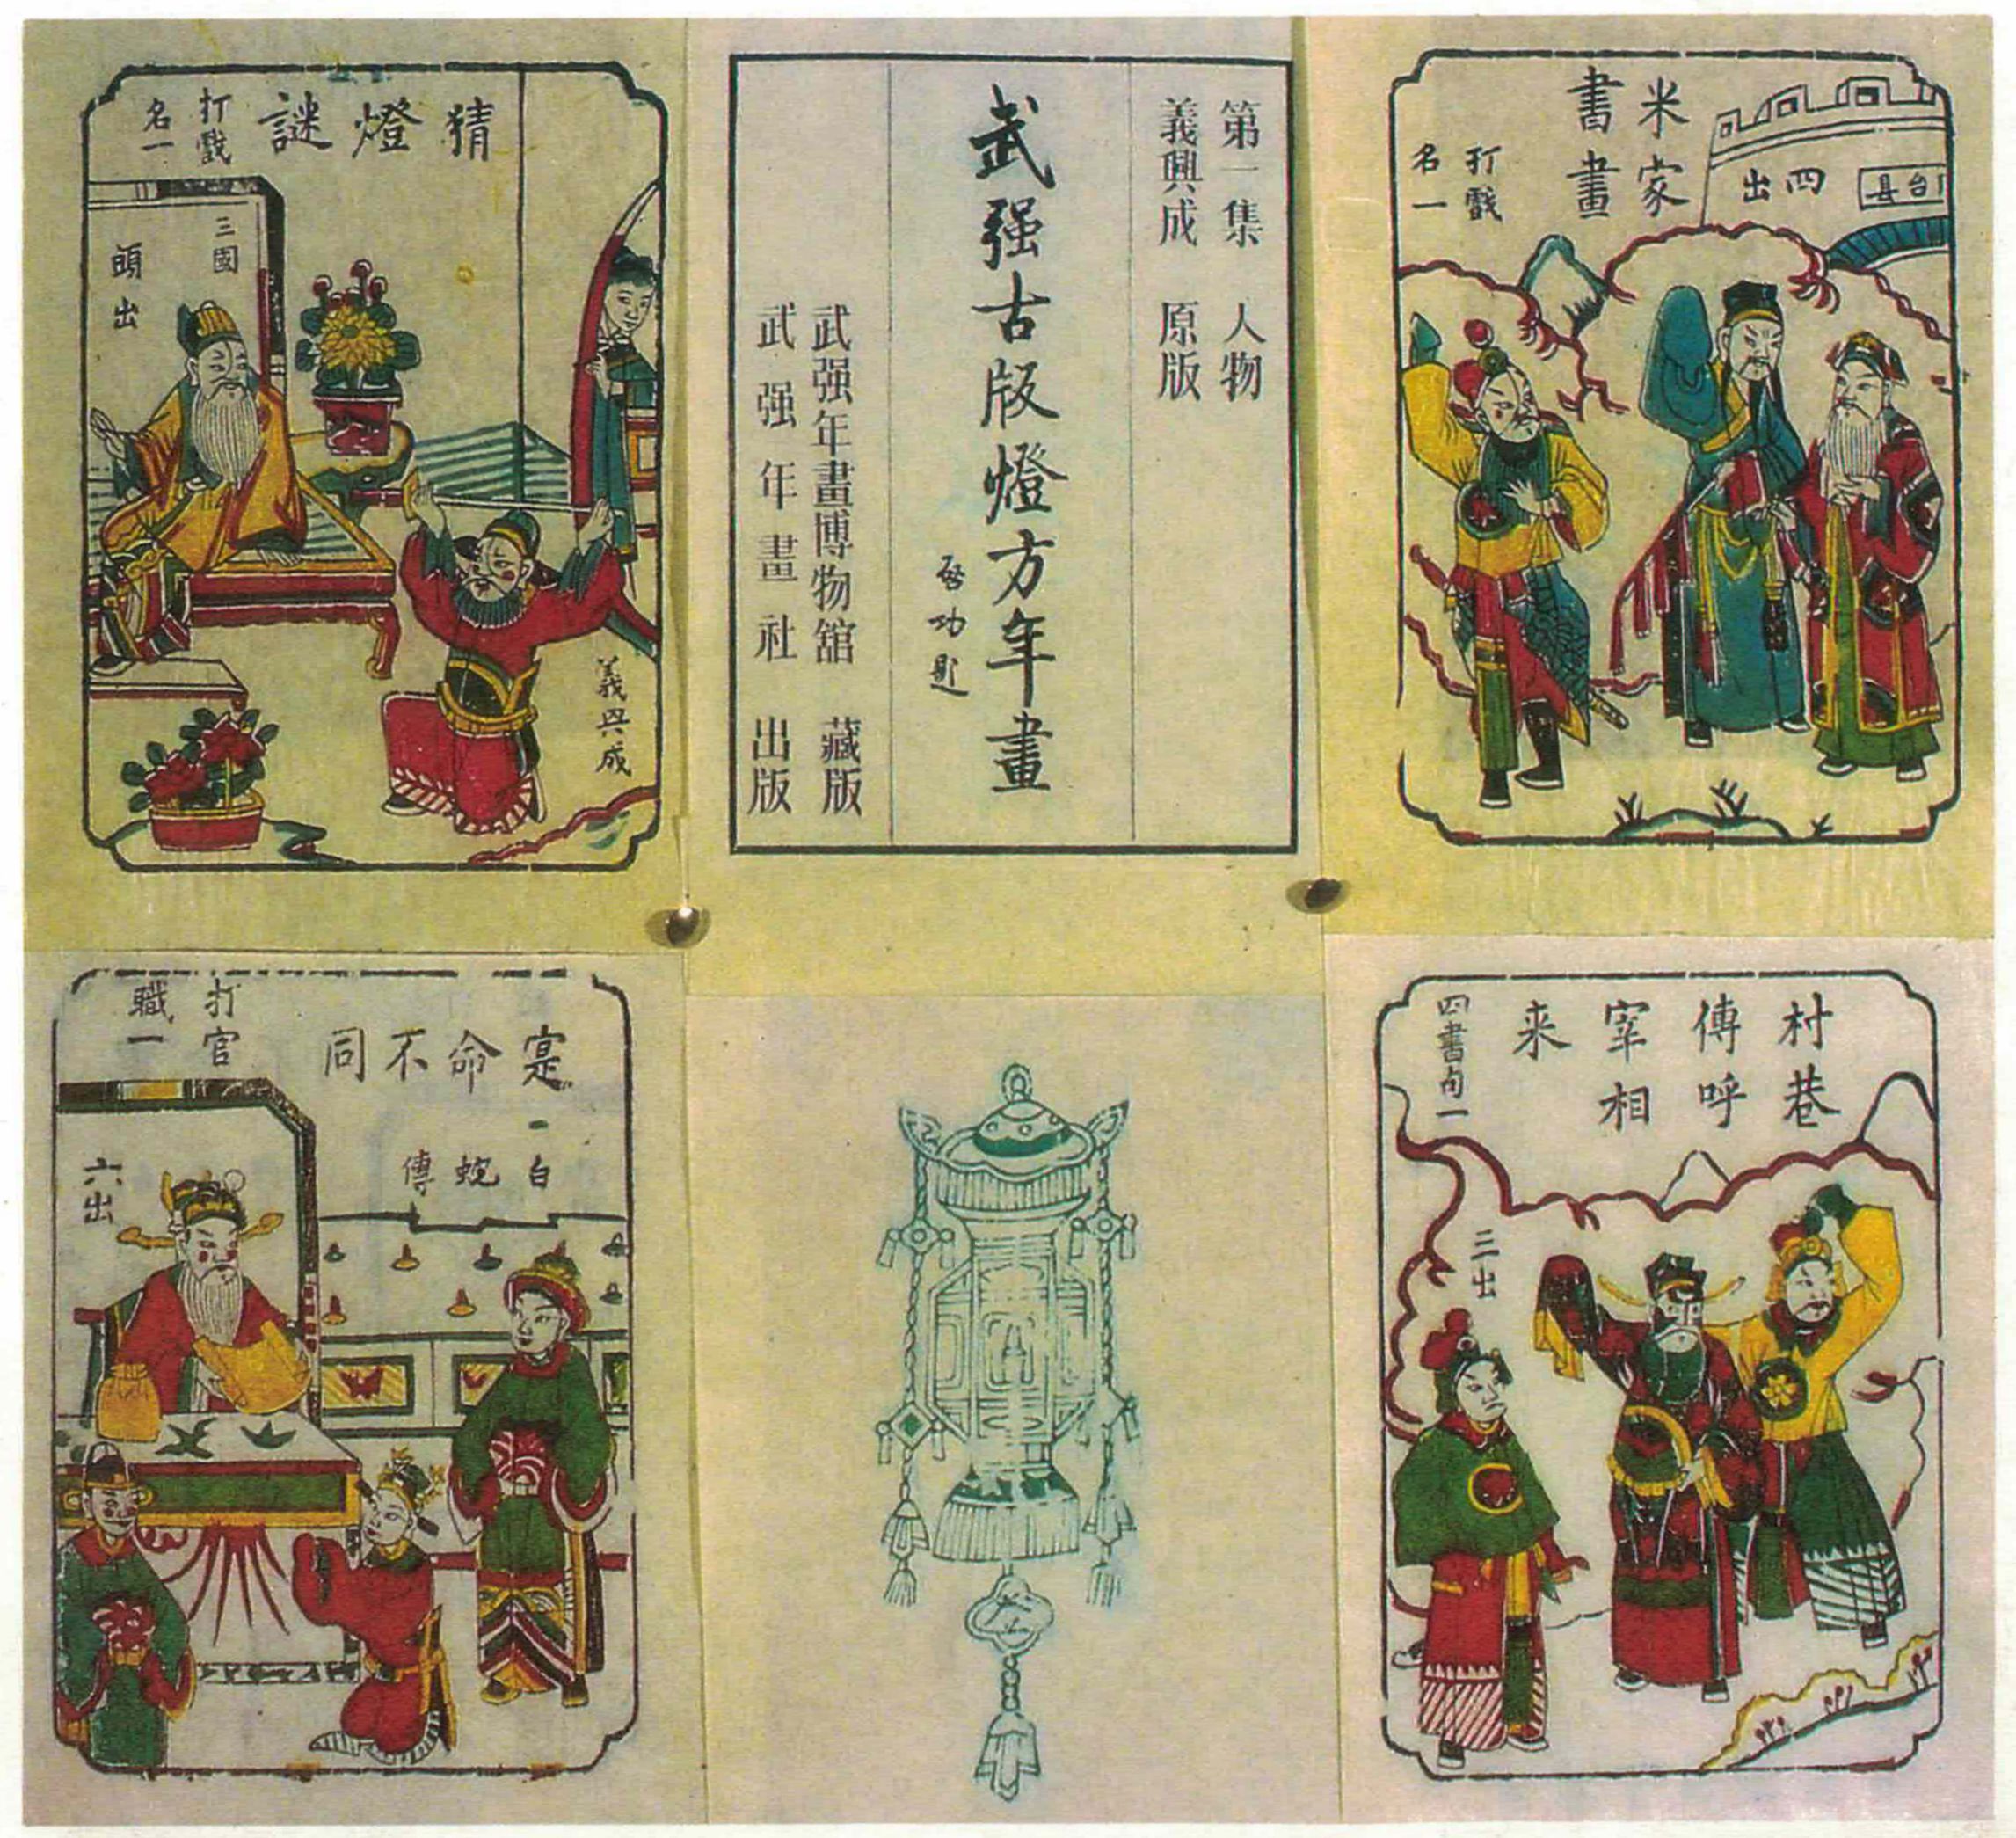 猜燈謎
打戲
名一
三國
頭出
義興成
第一集 人物
義興成 原版
武强古版燈方年畫
啓功題
武强年畫博物舘 藏版
武强年畫社 出版
米家
書畫
打戲
名一
四出
台县
寔命不同
打官
職一
一白蛇傳
六出
村巷
傳呼
宰相
来
四書句一
三出